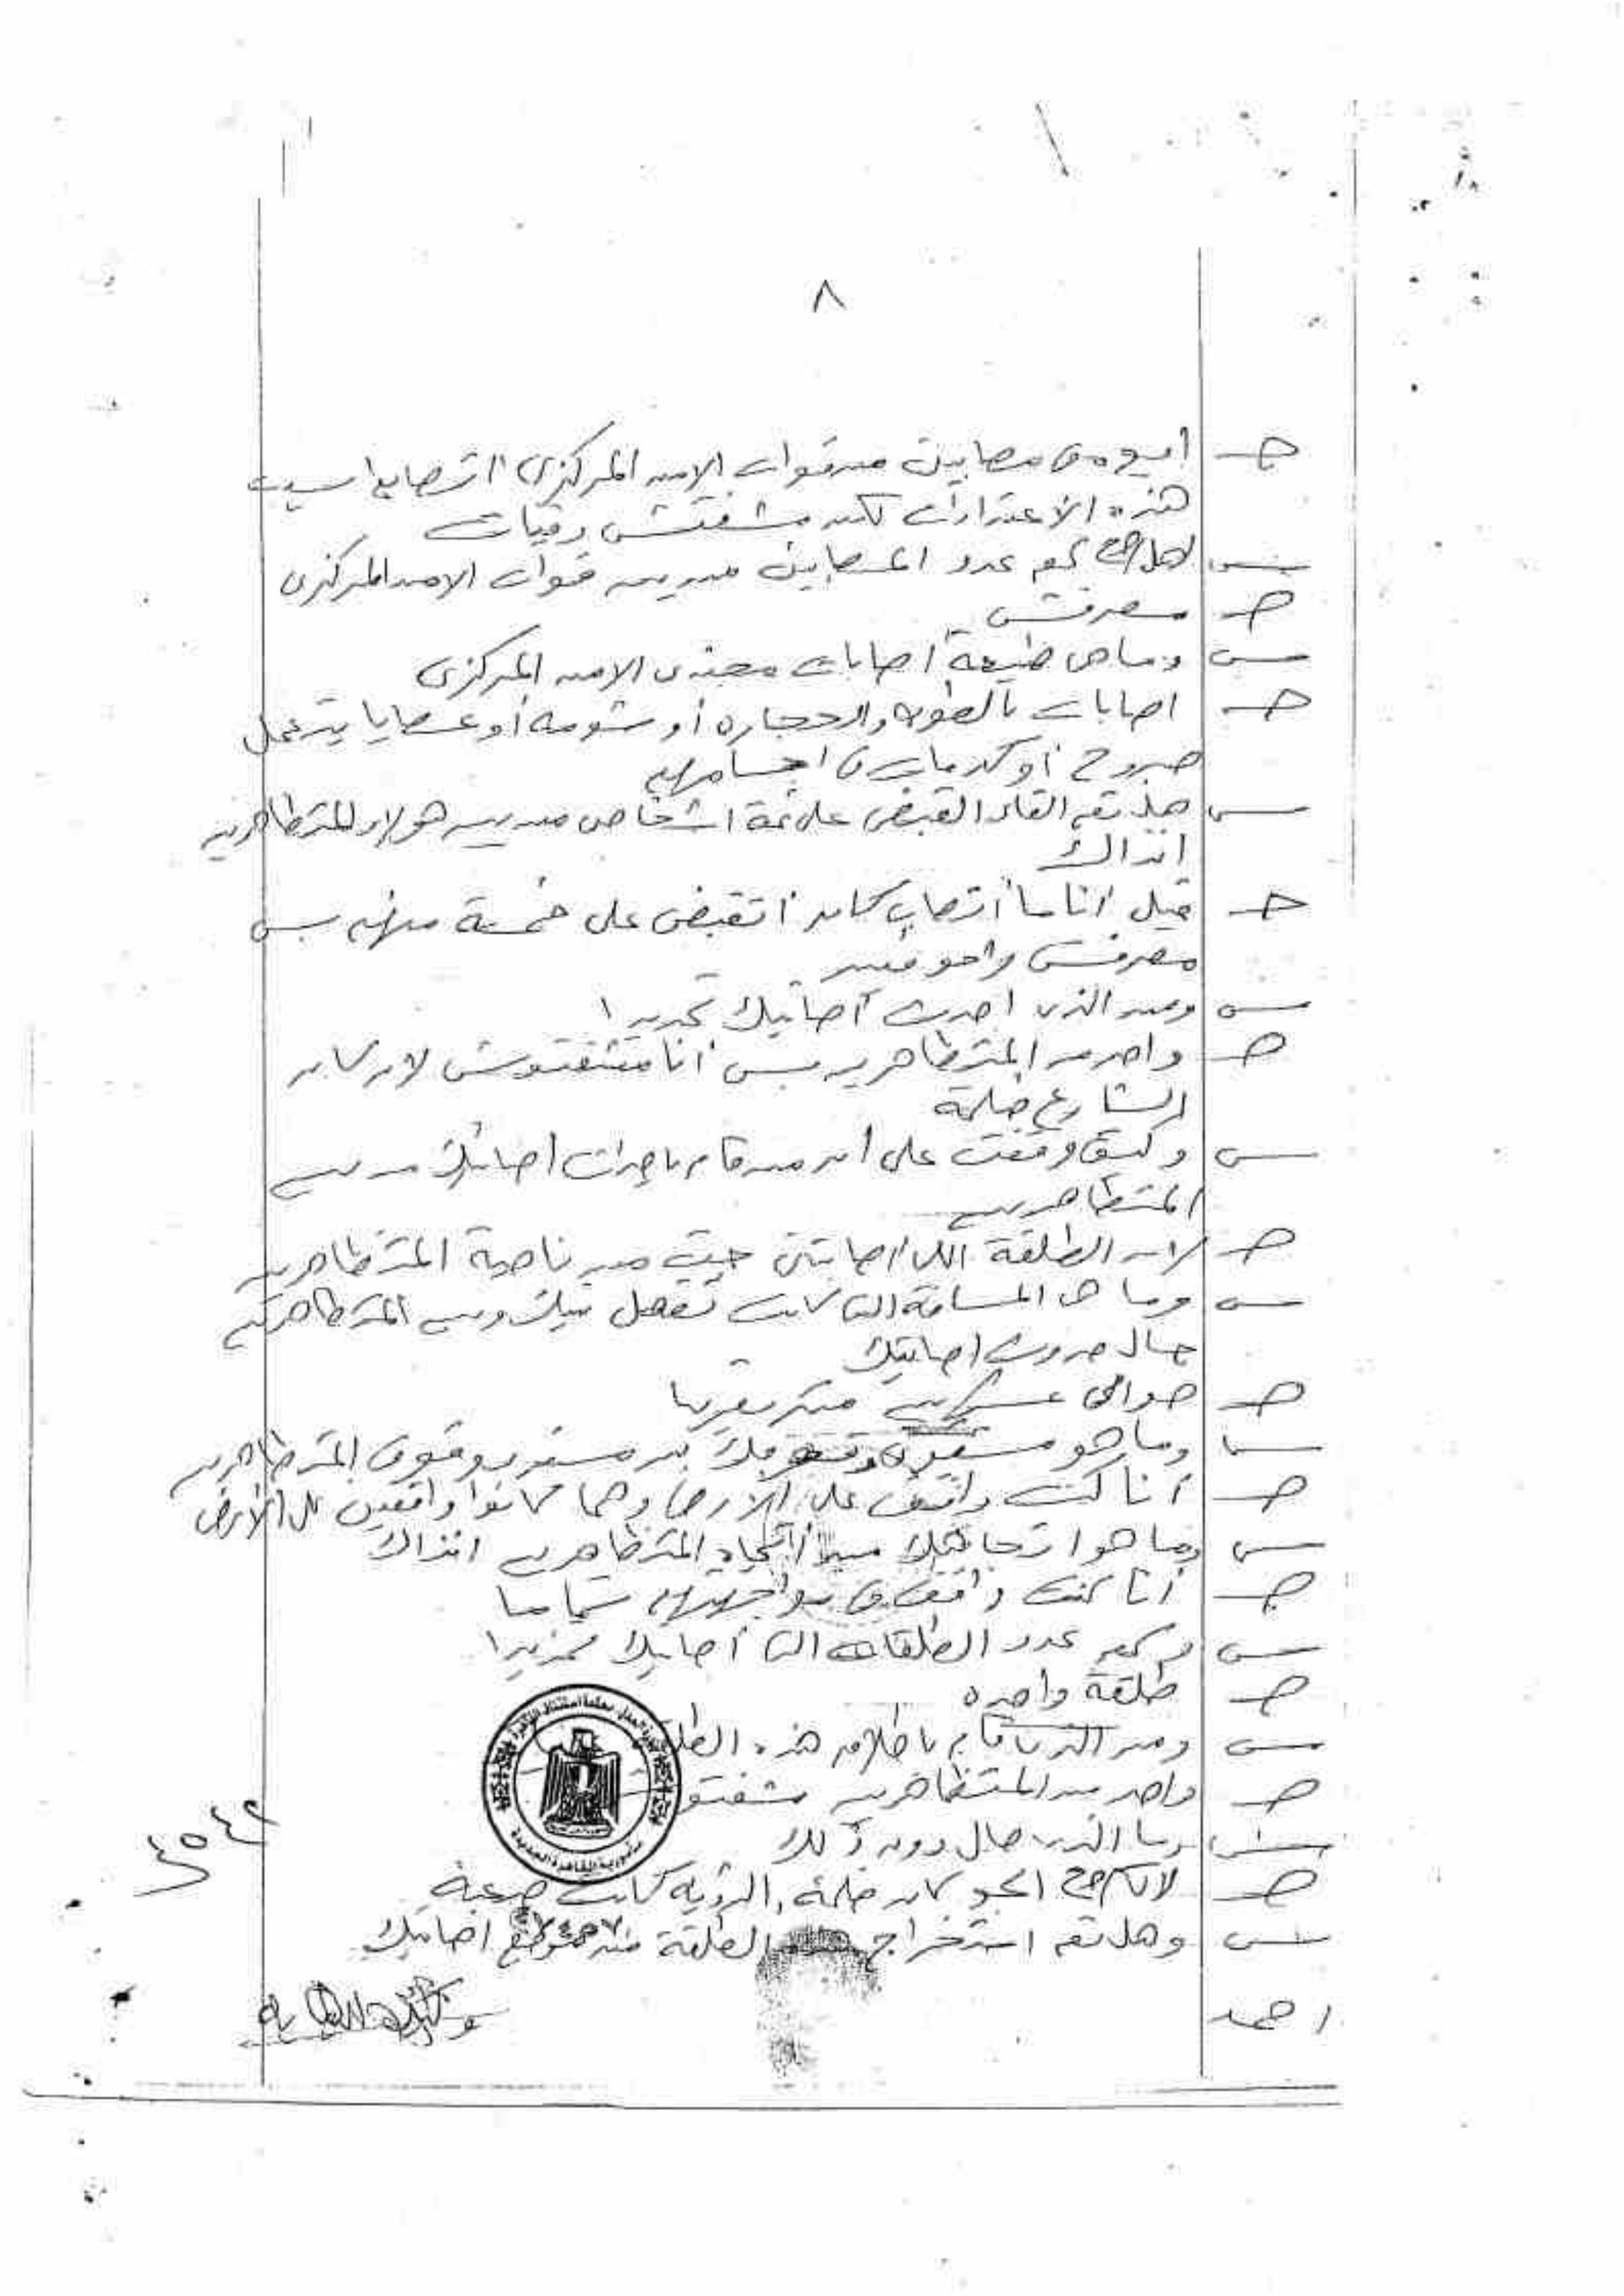 ٨
جـ ايوه فى مصابين من قوات الامن المركزى اتصابوا بسبب
هذه الاعتداءات لكن مشفتش وفيات
س كم عدد المصابين من بين قوات الامن المركزى
جـ معرفش
س وما هى طبيعة اصابات مجندى الامن المركزى
جـ اصابات بالطوب والحجاره أو شومه أو عصايا بتعمل
جروح أو كدمات فى اجسامهم
س هل تم القاء القبض على ثمة اشخاص من بين هولاء المتظاهرين
انذاك
جـ قبل أنا ما أتصاب كان أتقبض على خمسة منهم بس
معرفش واحد فيهم
س ومن الذى احدث أصابتك تحديدا
جـ واحد من المتظاهرين بس أنا مشفتوش لان كان
الشارع ضلمة
س وكيف وقفت على أن من قام باحداث أصابتك من بين
المتظاهرين
جـ لان الطلقة اللى أصابتنى جت من ناحية المتظاهرين
س وما هى المسافة التى كانت تفصل بينك وبين المتظاهرين
حال حدوث اصابتك
جـ حوالى عشرين متر تقريبا
س وما هو مستوى وقوفك من مستوى وقوف المتظاهرين
جـ أنا كنت واقف على الارض وهما كانوا واقفين على الأرض
س وما هو اتجاهك من اتجاه المتظاهرين انذاك
جـ أنا كنت واقف فى مواجهتهم تماما
س وكم عدد الطلقات التى أصابتك تحديدا
جـ طلقة واحده
س ومن الذى قام باطلاق هذه الطلقة
جـ واحد من المتظاهرين مشفتوش
س وما الذى حال دون ذلك
جـ الجو كان ضلمة والرؤيه كانت صعبة
س وهل تم استخراج الطلقة من موضع اصابتك
احمد
وكيل النيابة